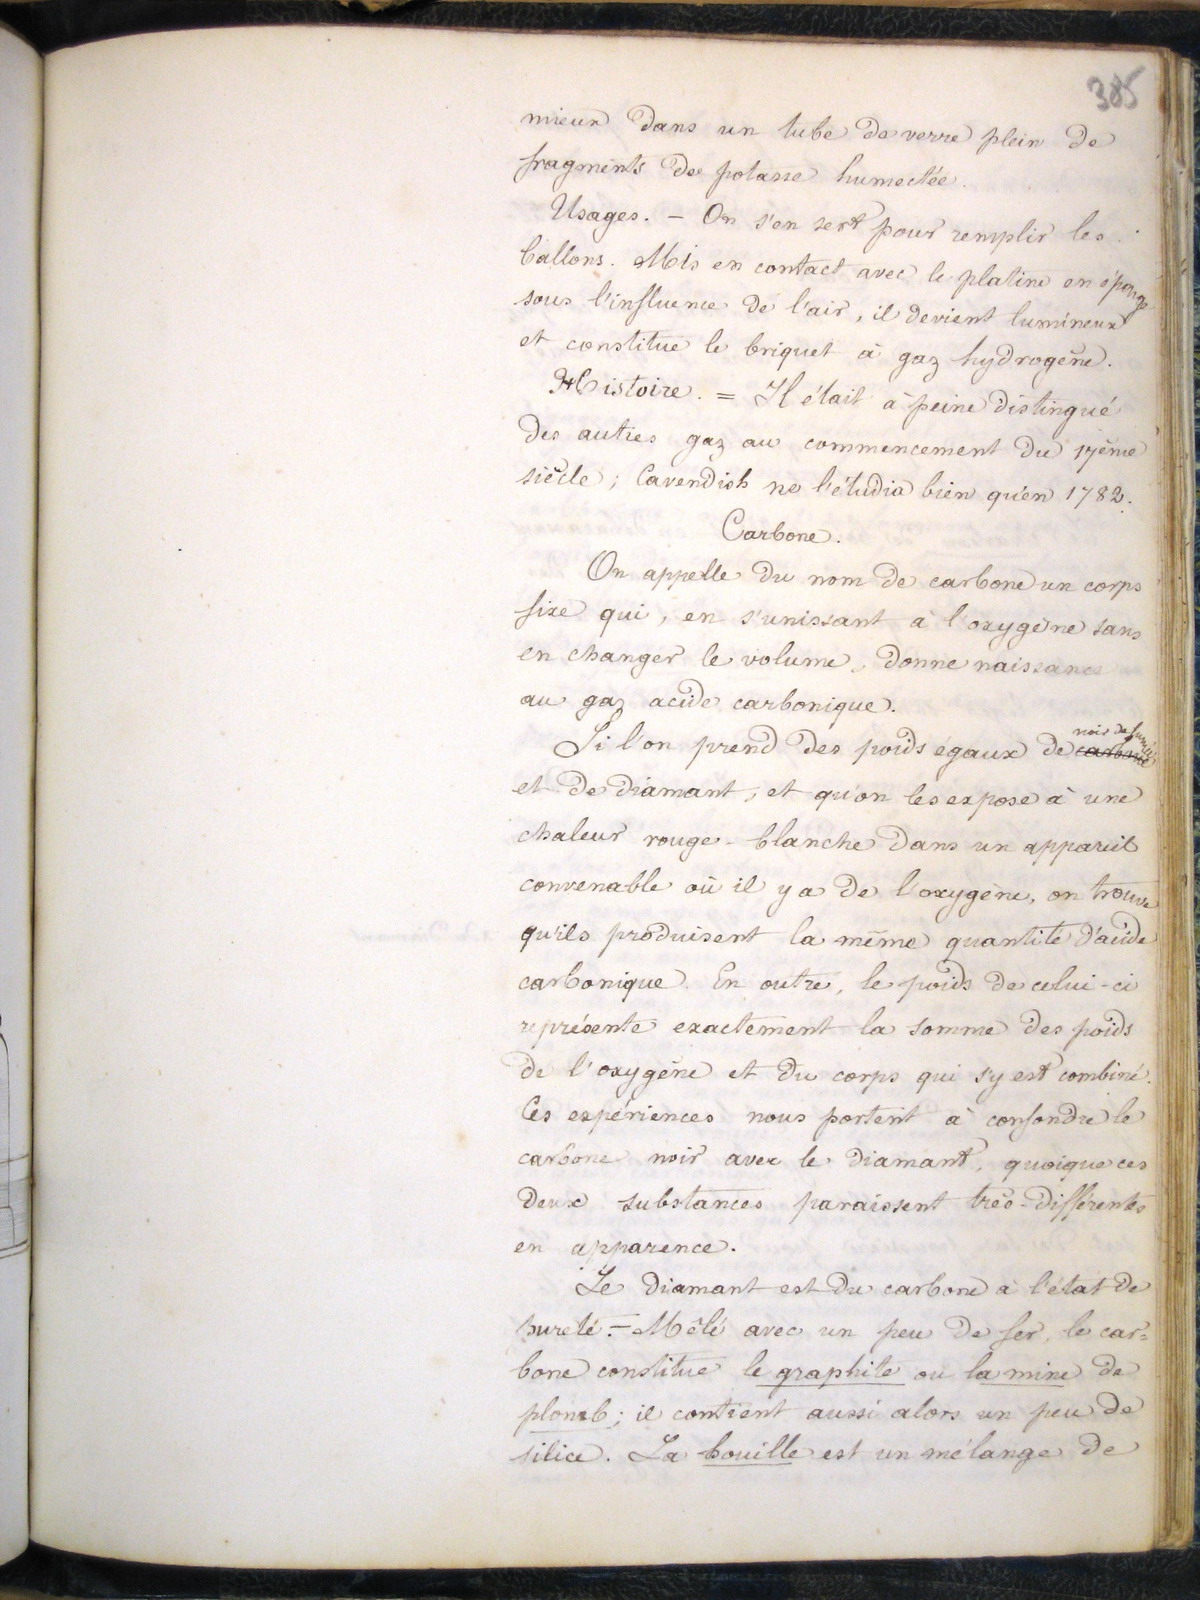 385
mieux dans un tube de verre plein de
fragments de potasse humectée.
Usages. – On s'en sert pour remplir les
ballons. Mis en contact avec le platine en éponge
sous l'influence de l'air, il devient lumineux
et constitue le briquet à gaz hydrogène.
Histoire. = Il était à peine distingué
des autres gaz au commencement du 17ème
siècle ; Cavendish ne l'étudia bien qu'en 1782.
Carbone.
On appelle du nom de carbone un corps
fixe qui, en s'unissant à l'oxygène sans
en changer le volume, donne naissance
au gaz acide carbonique.
noir de fumée
Si l'on prend des poids égaux de carbone
et de diamant, et qu'on les expose à une
chaleur rouge-blanche dans un appareil
convenable où il y a de l'oxygène, on trouve
qu'ils produisent la même quantité d'acide
carbonique. En outre, le poids de celui-ci
représente exactement la somme des poids
de l'oxygène et du corps qui s'y est combiné.
Ces expériences nous portent à confondre le
carbone noir avec le diamant, quoique ces
deux substances paraissent très-différentes
en apparence.
Le diamant est du carbone à l'état de
pureté. – Mêlé avec un peu de fer, le car=
bone constitue le graphite ou la mine de
plomb ; il contient aussi alors un peu de
silice. La houille est un mélange de